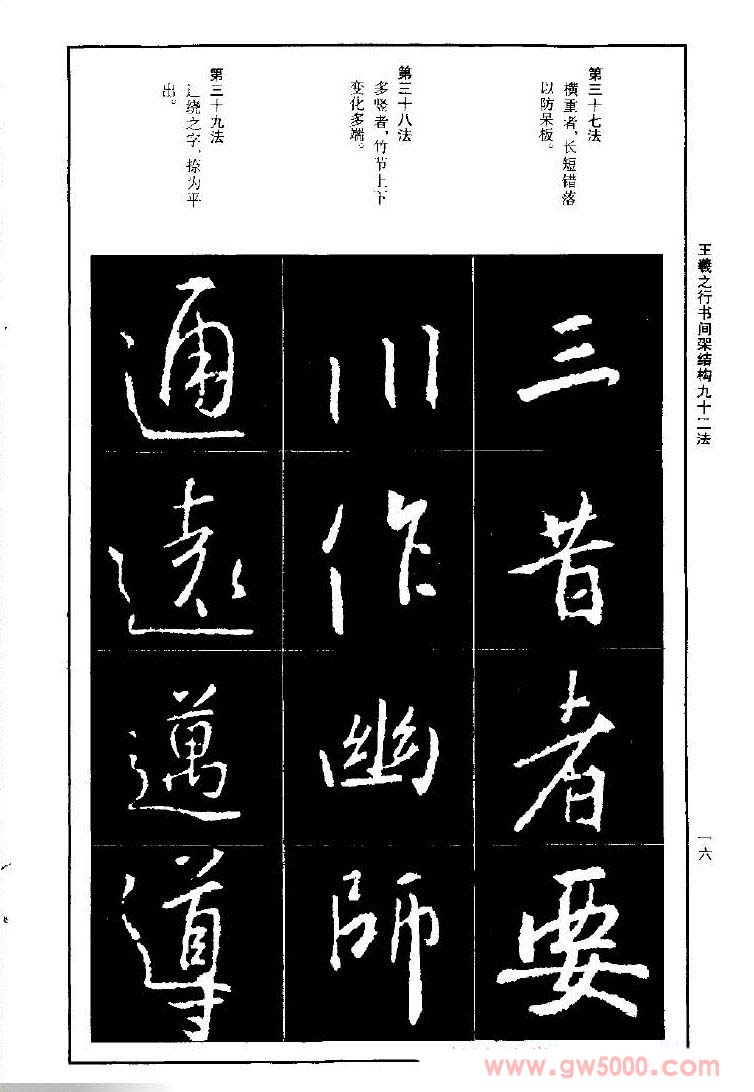 王羲之行书间架结构九十二法
一六
第三十七法
横重者，长短错落
以防呆板。
第三十八法
多竖者，竹节上下
变化多端。
第三十九法
之字，捺为平
出。
三昔者要
川作幽师
通远迈导
www.gw5000.com